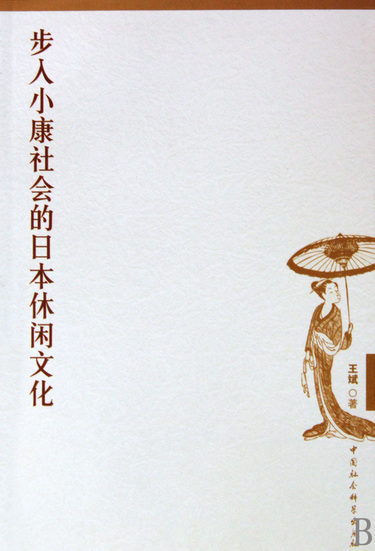 步入小康社会的日本休闲文化
王斌 ○著
中国社会科学出版社
B